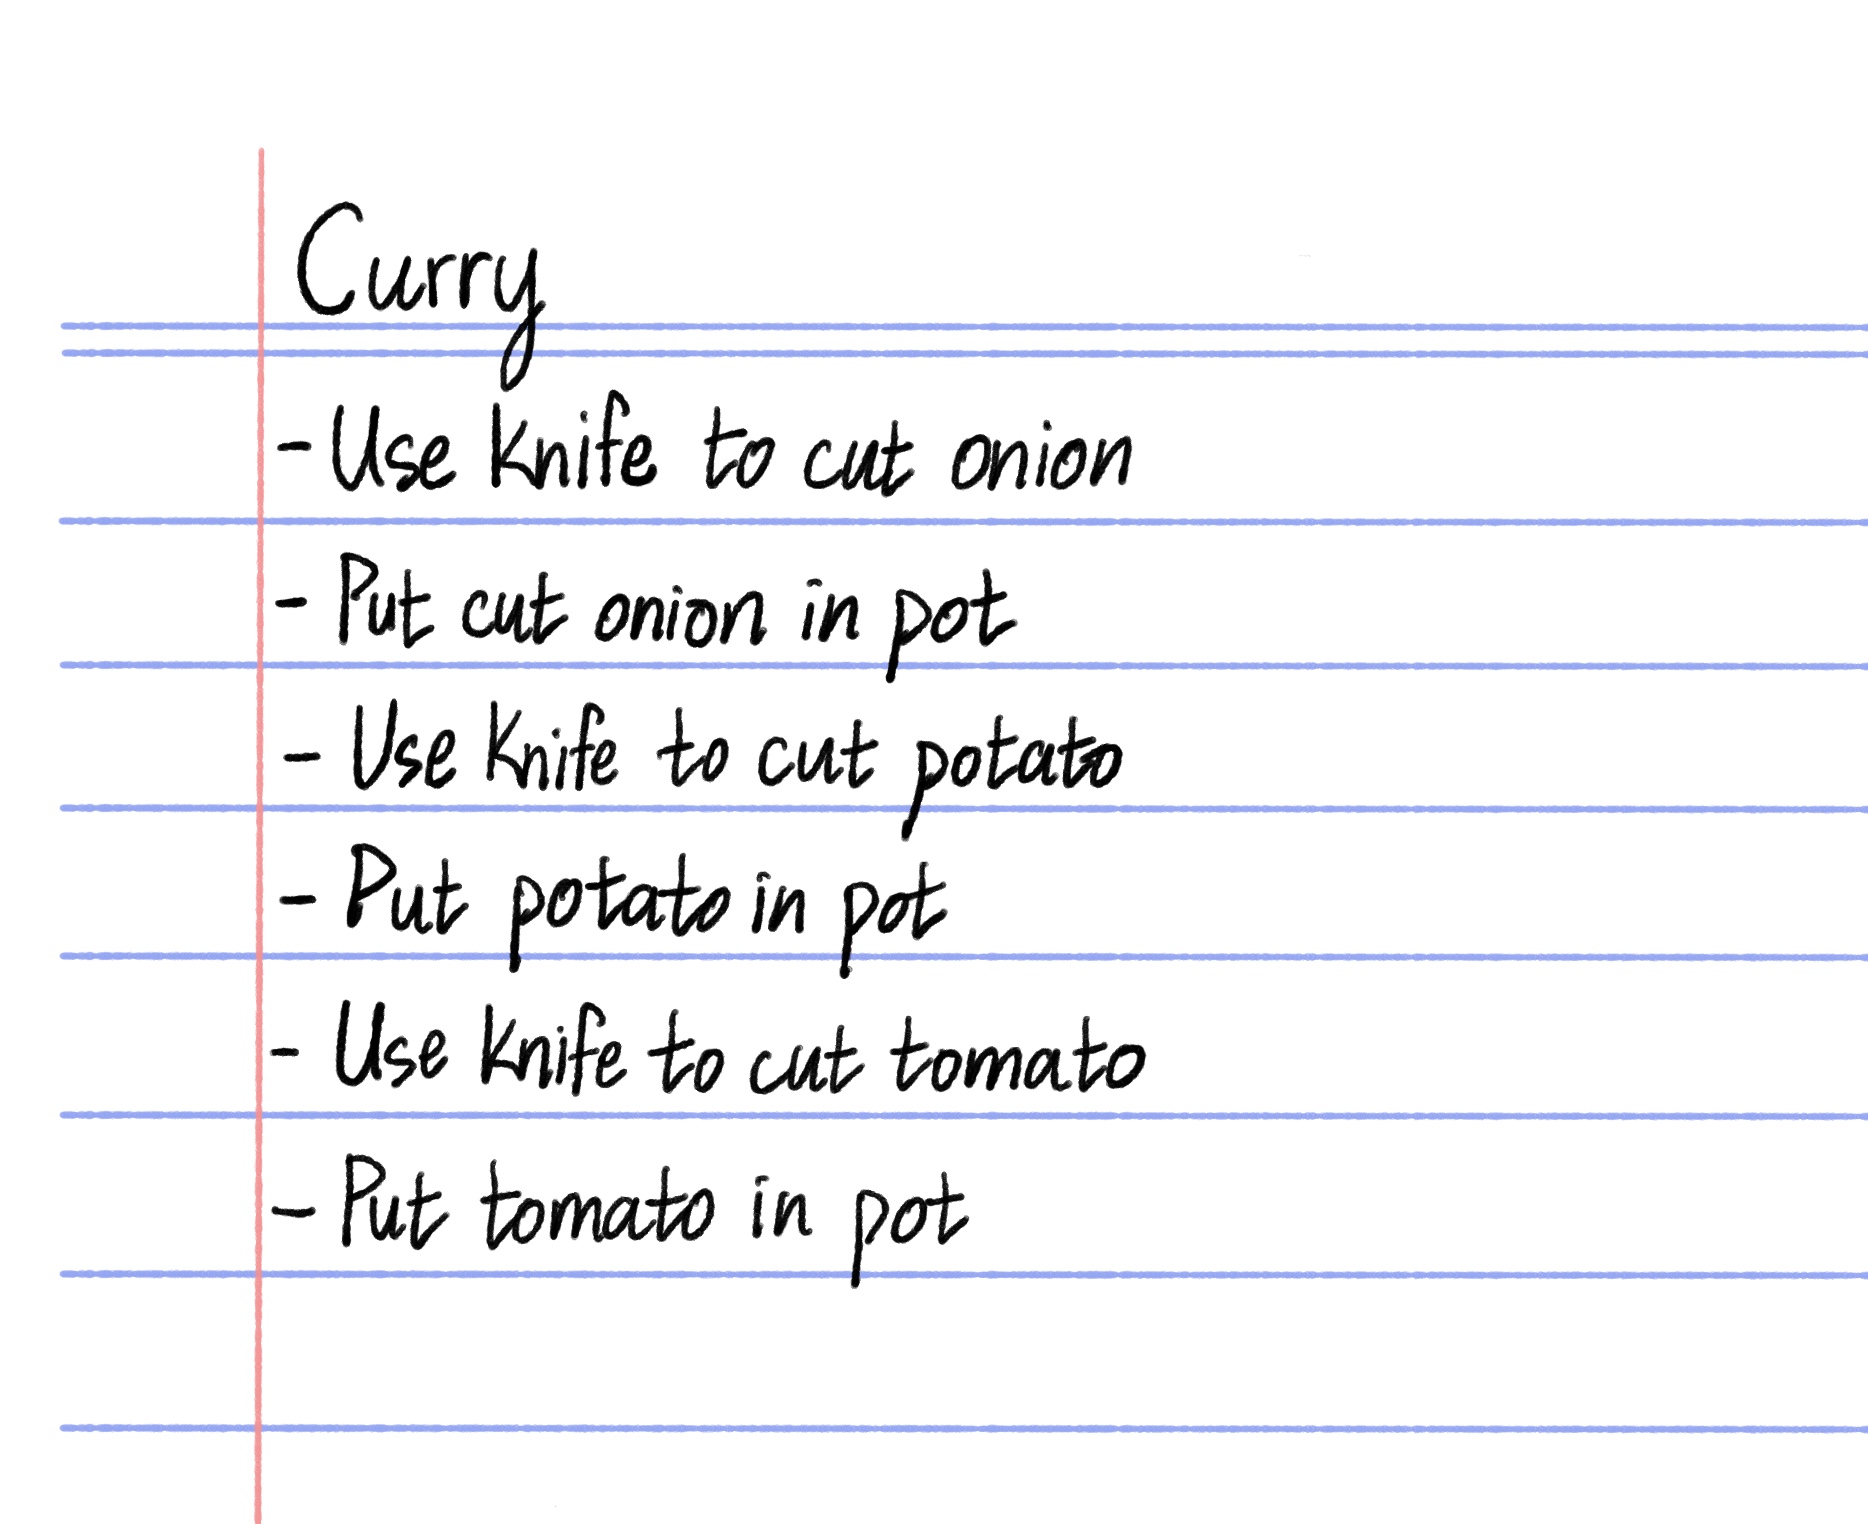 Curry
- Use knife to cut onion
- Put cut onion in pot
- Use knife to cut potato
- Put potato in pot
- Use knife to cut tomato
- Put tomato in pot